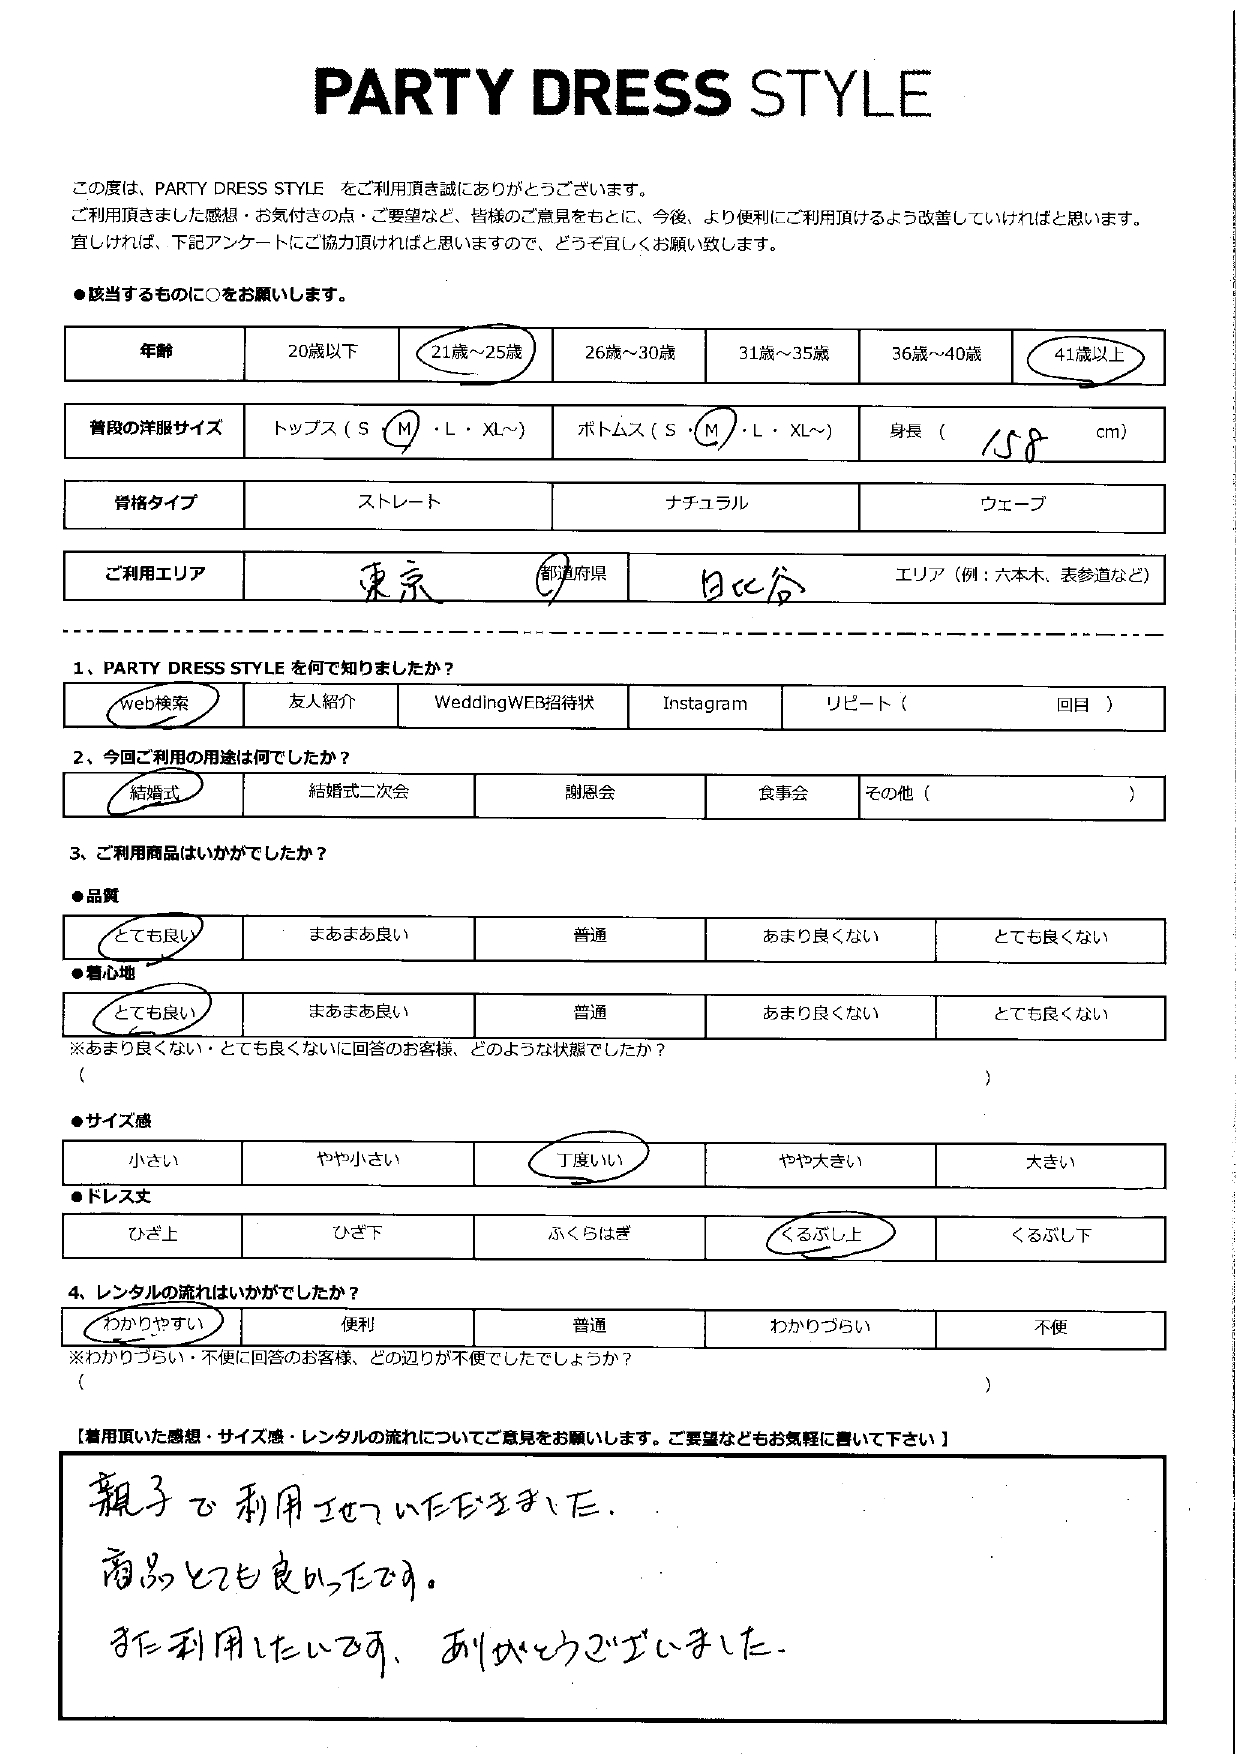 PARTY DRESS STYLE
この度は、PARTY DRESS STYLE　をご利用頂き誠にありがとうございます。
ご利用頂きました感想・お気付きの点・ご要望など、皆様のご意見をもとに、今後、より便利にご利用頂けるよう改善していければと思います。
宜しければ、下記アンケートにご協力頂ければと思いますので、どうぞ宜しくお願い致します。
●該当するものに○をお願いします。
年齢 20歳以下 21歳～25歳 26歳～30歳 31歳～35歳 36歳～40歳 41歳以上
普段の洋服サイズ トップス ( S ・ M ・ L ・ XL～) ボトムス ( S ・ M ・ L ・ XL～) 身長 ( 158 cm)
骨格タイプ ストレート ナチュラル ウェーブ
ご利用エリア 東京 都道府県 日比谷 エリア（例：六本木、表参道など）
1、PARTY DRESS STYLE を何で知りましたか？
web検索 友人紹介 WeddingWEB招待状 Instagram リピート（ 回目 ）
2、今回ご利用の用途は何でしたか？
結婚式 結婚式二次会 謝恩会 食事会 その他（ ）
3、ご利用商品はいかがでしたか？
●品質
とても良い まあまあ良い 普通 あまり良くない とても良くない
●着心地
とても良い まあまあ良い 普通 あまり良くない とても良くない
※あまり良くない・とても良くないに回答のお客様、どのような状態でしたか？
（ ）
●サイズ感
小さい やや小さい 丁度いい やや大きい 大きい
●ドレス丈
ひざ上 ひざ下 ふくらはぎ くるぶし上 くるぶし下
4、レンタルの流れはいかがでしたか？
わかりやすい 便利 普通 わかりづらい 不便
※わかりづらい・不便に回答のお客様、どの辺りが不便でしたでしょうか？
（ ）
【着用頂いた感想・サイズ感・レンタルの流れについてご意見をお願いします。ご要望などもお気軽に書いて下さい 】
親子で利用させていただきました.
商品とても良かったです。
また利用したいです、ありがとうございました.